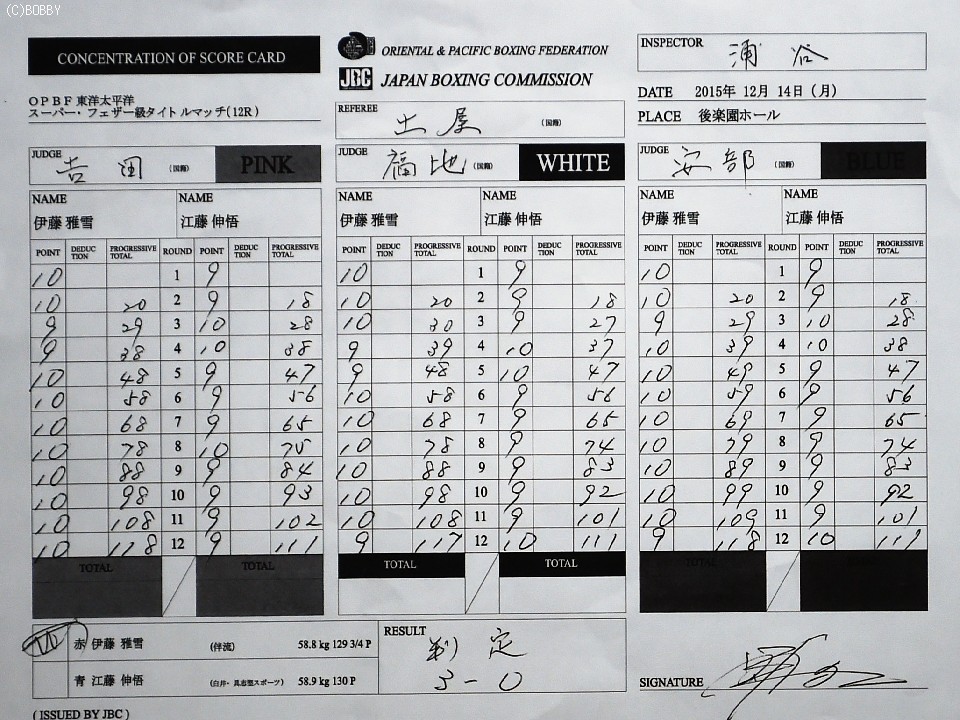 (C)BOBBY
CONCENTRATION OF SCORE CARD
ORIENTAL & PACIFIC BOXING FEDERATION
JBC JAPAN BOXING COMMISSION
INSPECTOR 浦谷
DATE 2015年 12月 14日 (月)
PLACE 後楽園ホール
OPBF 東洋太平洋
スーパー・フェザー級タイトルマッチ(12R)
REFEREE 土屋 (国籍)
JUDGE 吉田 (国籍) PINK
JUDGE 福地 (国籍) WHITE
JUDGE 安部 (国籍) BLUE
NAME NAME NAME NAME NAME NAME
伊藤 雅雪 江藤 伸悟 伊藤 雅雪 江藤 伸悟 伊藤 雅雪 江藤 伸悟
POINT DEDUCTION PROGRESSIVE TOTAL ROUND POINT DEDUCTION PROGRESSIVE TOTAL POINT DEDUCTION PROGRESSIVE TOTAL ROUND POINT DEDUCTION PROGRESSIVE TOTAL POINT DEDUCTION PROGRESSIVE TOTAL ROUND POINT DEDUCTION PROGRESSIVE TOTAL
10 1 9 10 1 9 10 1 9
10 20 2 9 18 10 20 2 9 18 10 20 2 9 18
9 29 3 10 28 10 30 3 9 27 9 29 3 10 28
9 38 4 10 38 9 39 4 10 37 10 39 4 10 38
10 48 5 9 47 9 48 5 10 47 10 49 5 9 47
10 58 6 9 56 10 58 6 9 56 10 59 6 9 56
10 68 7 9 65 10 68 7 9 65 10 69 7 9 65
10 78 8 10 75 10 78 8 9 74 10 79 8 9 74
10 88 9 9 84 10 88 9 9 83 10 89 9 9 83
10 98 10 9 93 10 98 10 9 92 10 99 10 9 92
10 108 11 9 102 10 108 11 9 101 10 109 11 9 101
10 118 12 9 111 9 117 12 10 111 9 118 12 10 111
TOTAL TOTAL TOTAL TOTAL TOTAL TOTAL
赤 伊藤 雅雪 (伴流) 58.8 kg 129 3/4 P
青 江藤 伸悟 (白井・具志堅スポーツ) 58.9 kg 130 P
RESULT 判定
3-0
SIGNATURE
( ISSUED BY JBC )